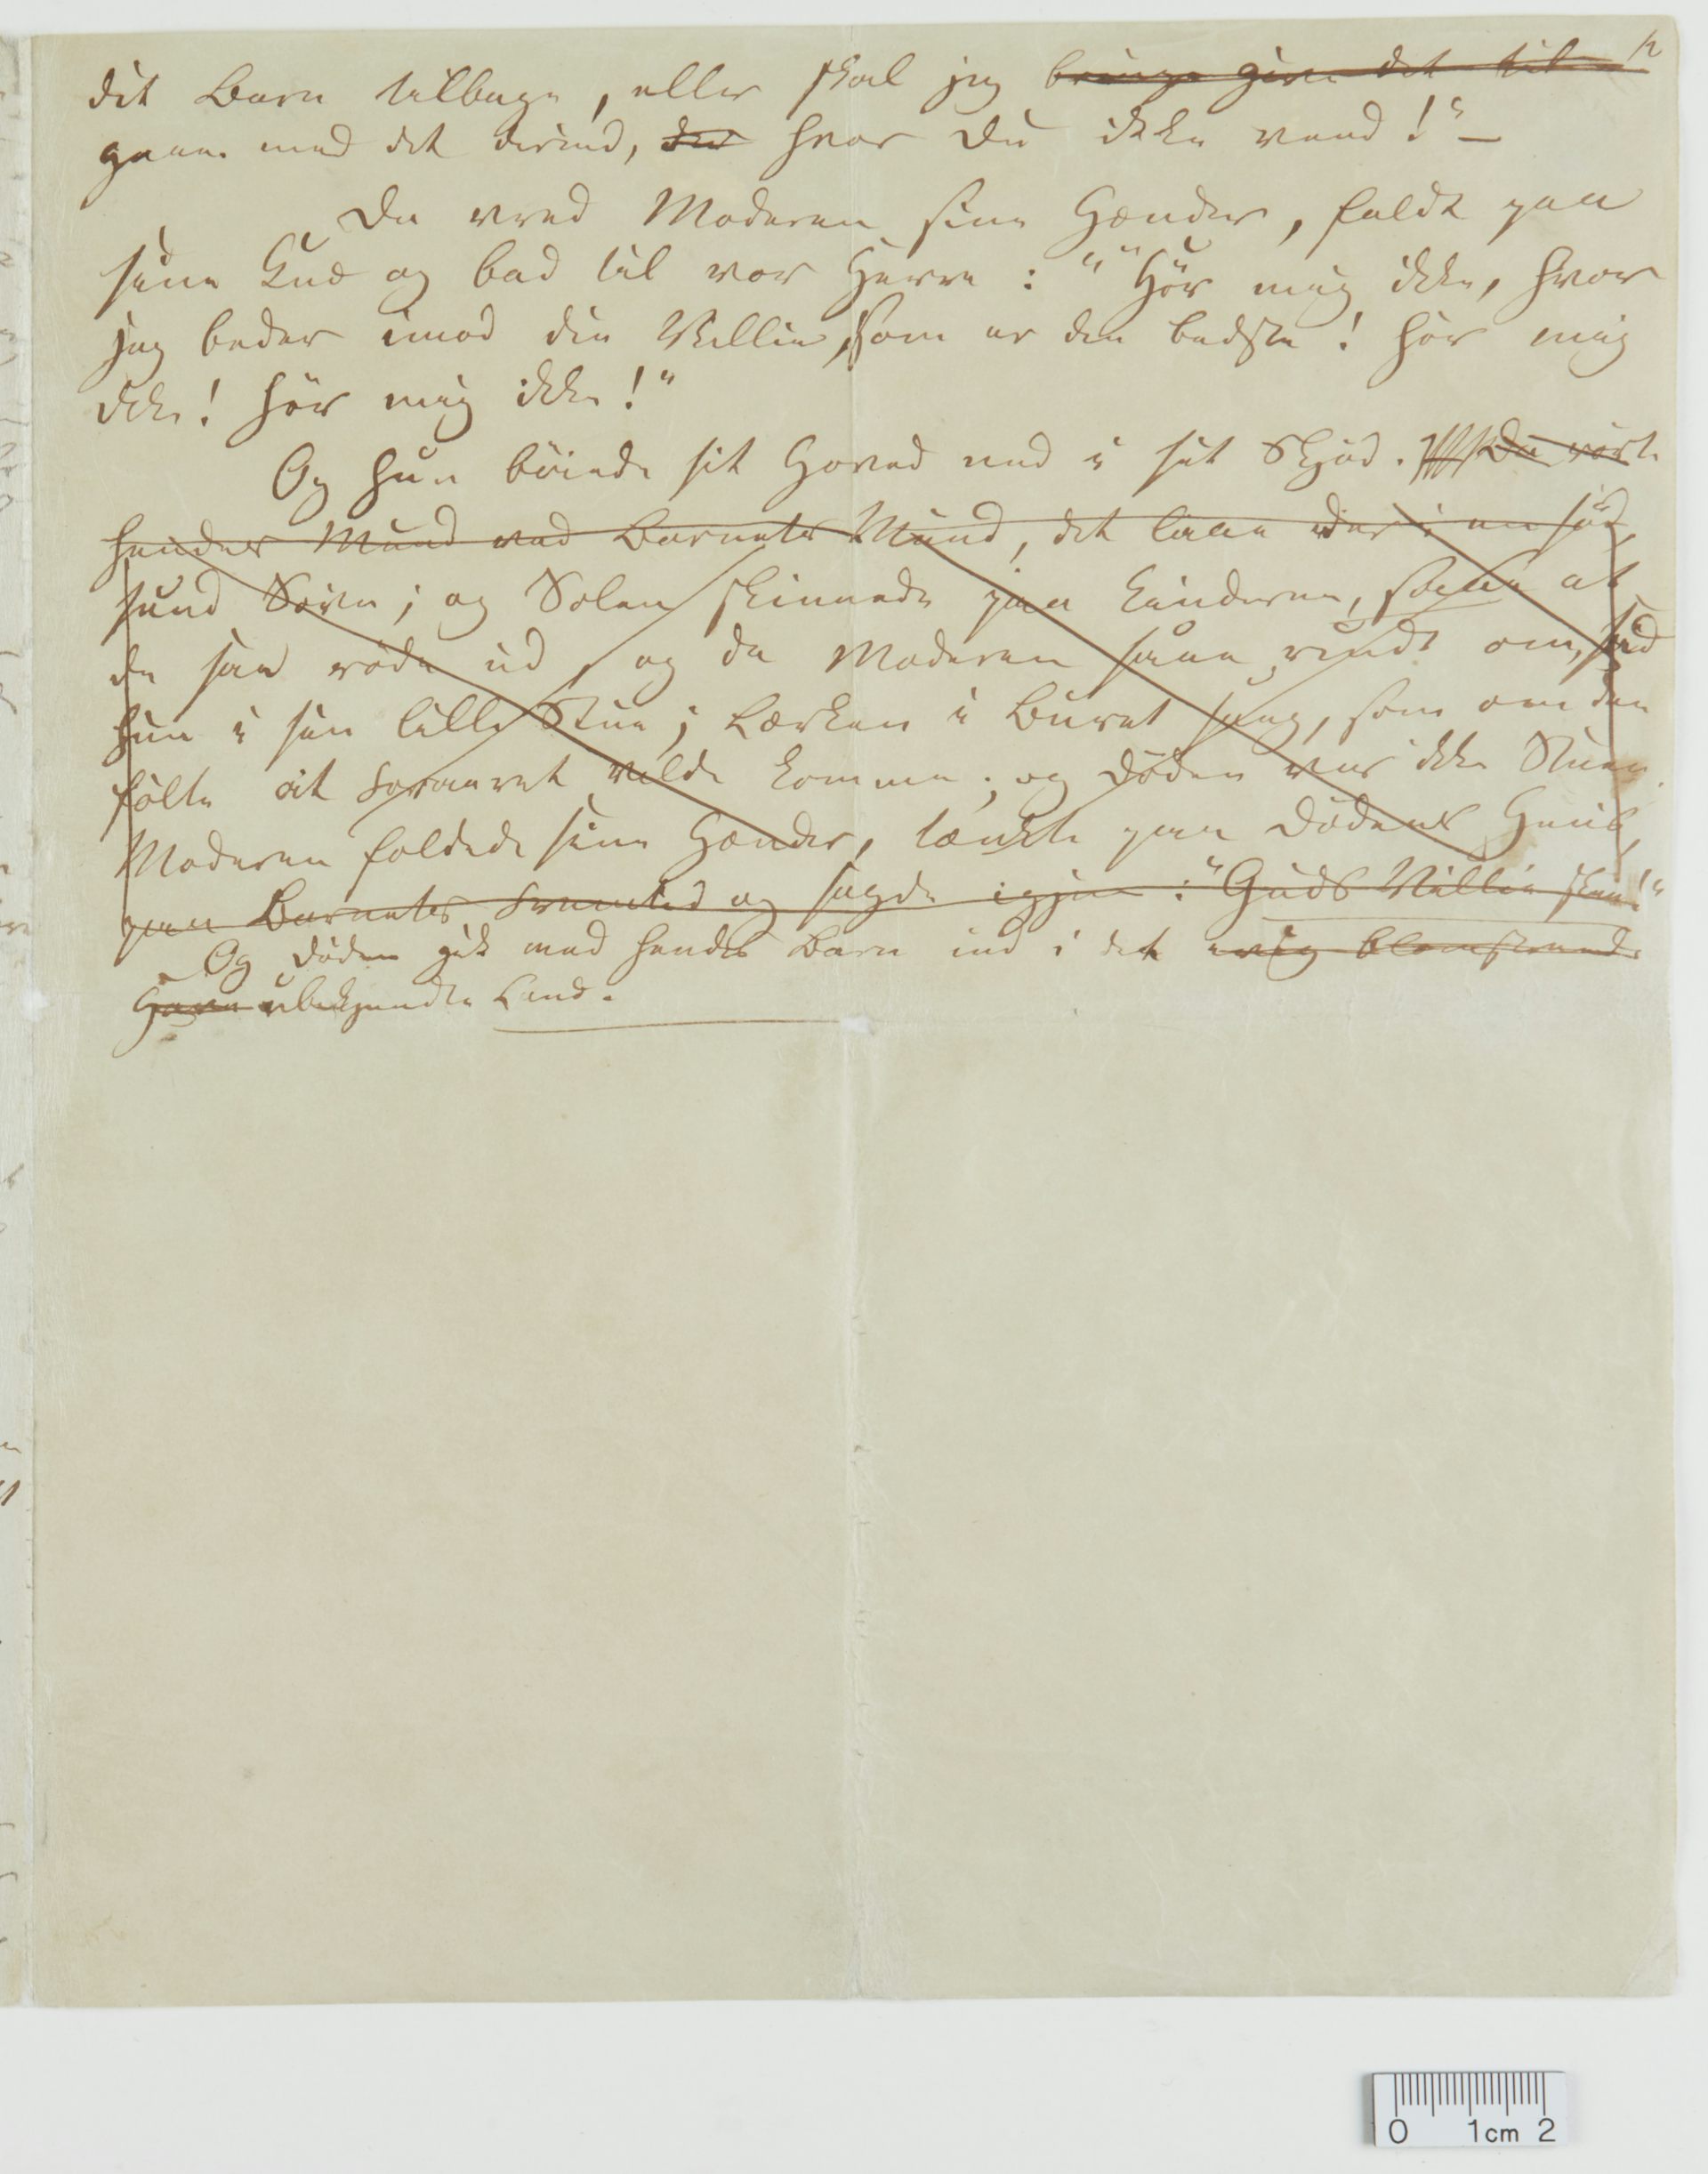 12
dit Barn tilbage, eller skal jeg bringe give det til
gaae med det derind, der hvor Du ikke veed!"—
Da vred Moderen sine Hænder, faldt paa
sine Knæ og bad til vor Herre: "Hör mig ikke, hvor
jeg beder imod din Villie, som er den bedste! hör mig
ikke! hör mig ikke!"
Og hun böiede sit Hoved ned i sit Skjöd. Da rörte
hendes Mund ved Barnets Mund, det laae der i en sød,
sund Søvn; og Solen skinnede paa Kinderne, saa at
de saae röde ud, og da Moderen saae rundt om, sad
hun i sin lille Stue; Lærken i Buret sang, som om den
fölte at Foraaret vilde komme; og Döden var ikke Stuen.
Moderen foldede sine Hænder, tænkte paa Dödens Huus,
paa Barnets Fremtid og sagde igjen: "Guds Villie skee!"
Og Döden gik med hendes Barn ind i det evig blomstrende
Have ubekjendte Land.
0 1cm 2